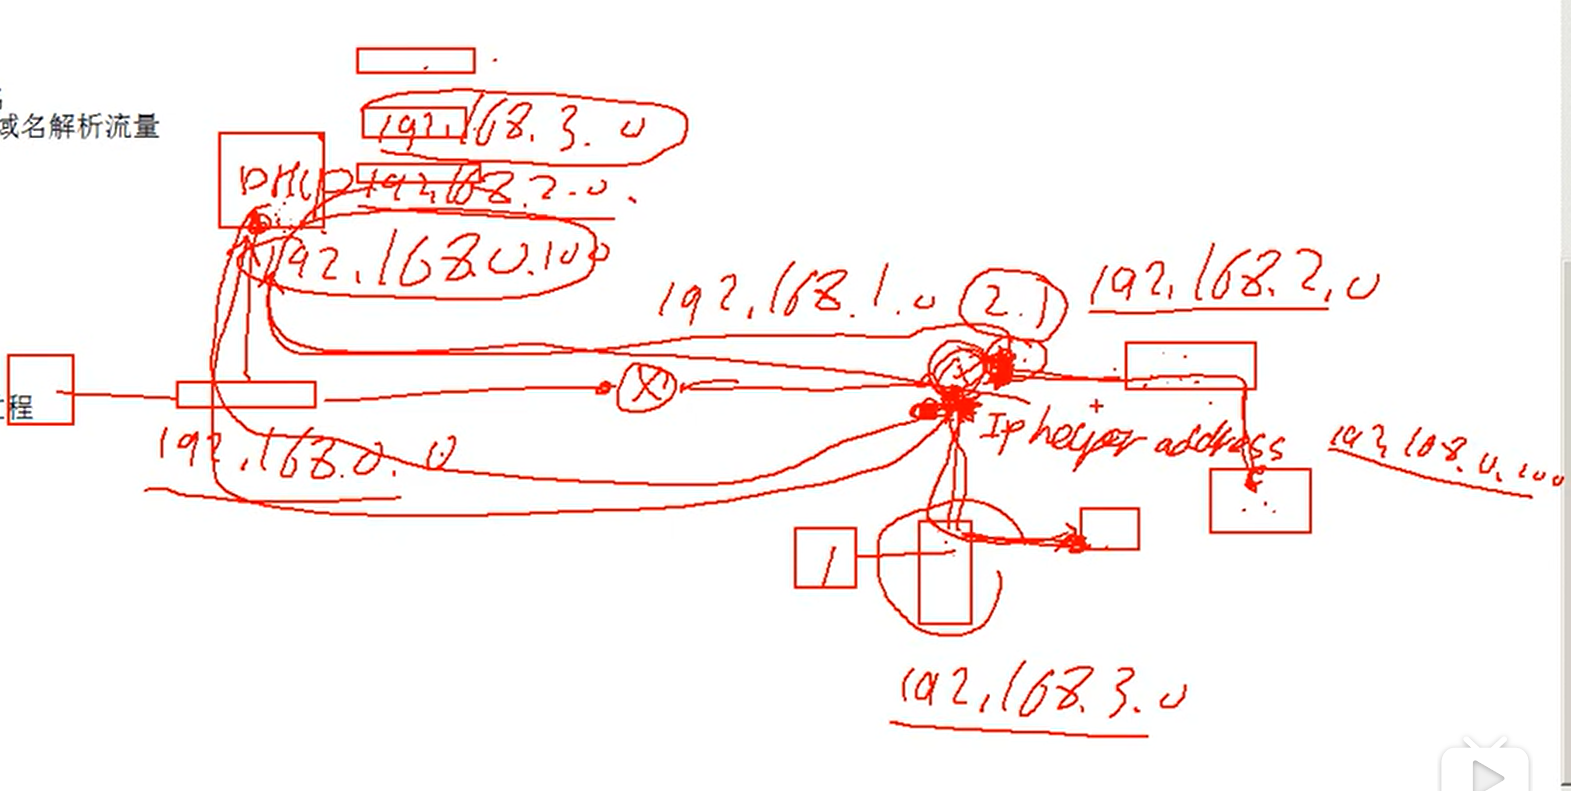 域名解析流量
192.168.3.0
DHCP 192.168.2.0
192.168.0.100
192.168.1.0
2.1
192.168.2.0
程
192.168.0.0
Ip helper address
192.168.0.100
192.168.3.0